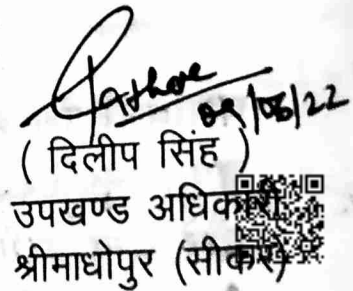 Rathore
09/06/22
( दिलीप सिंह )
उपखण्ड अधिकारी
श्रीमाधोपुर (सीकर)